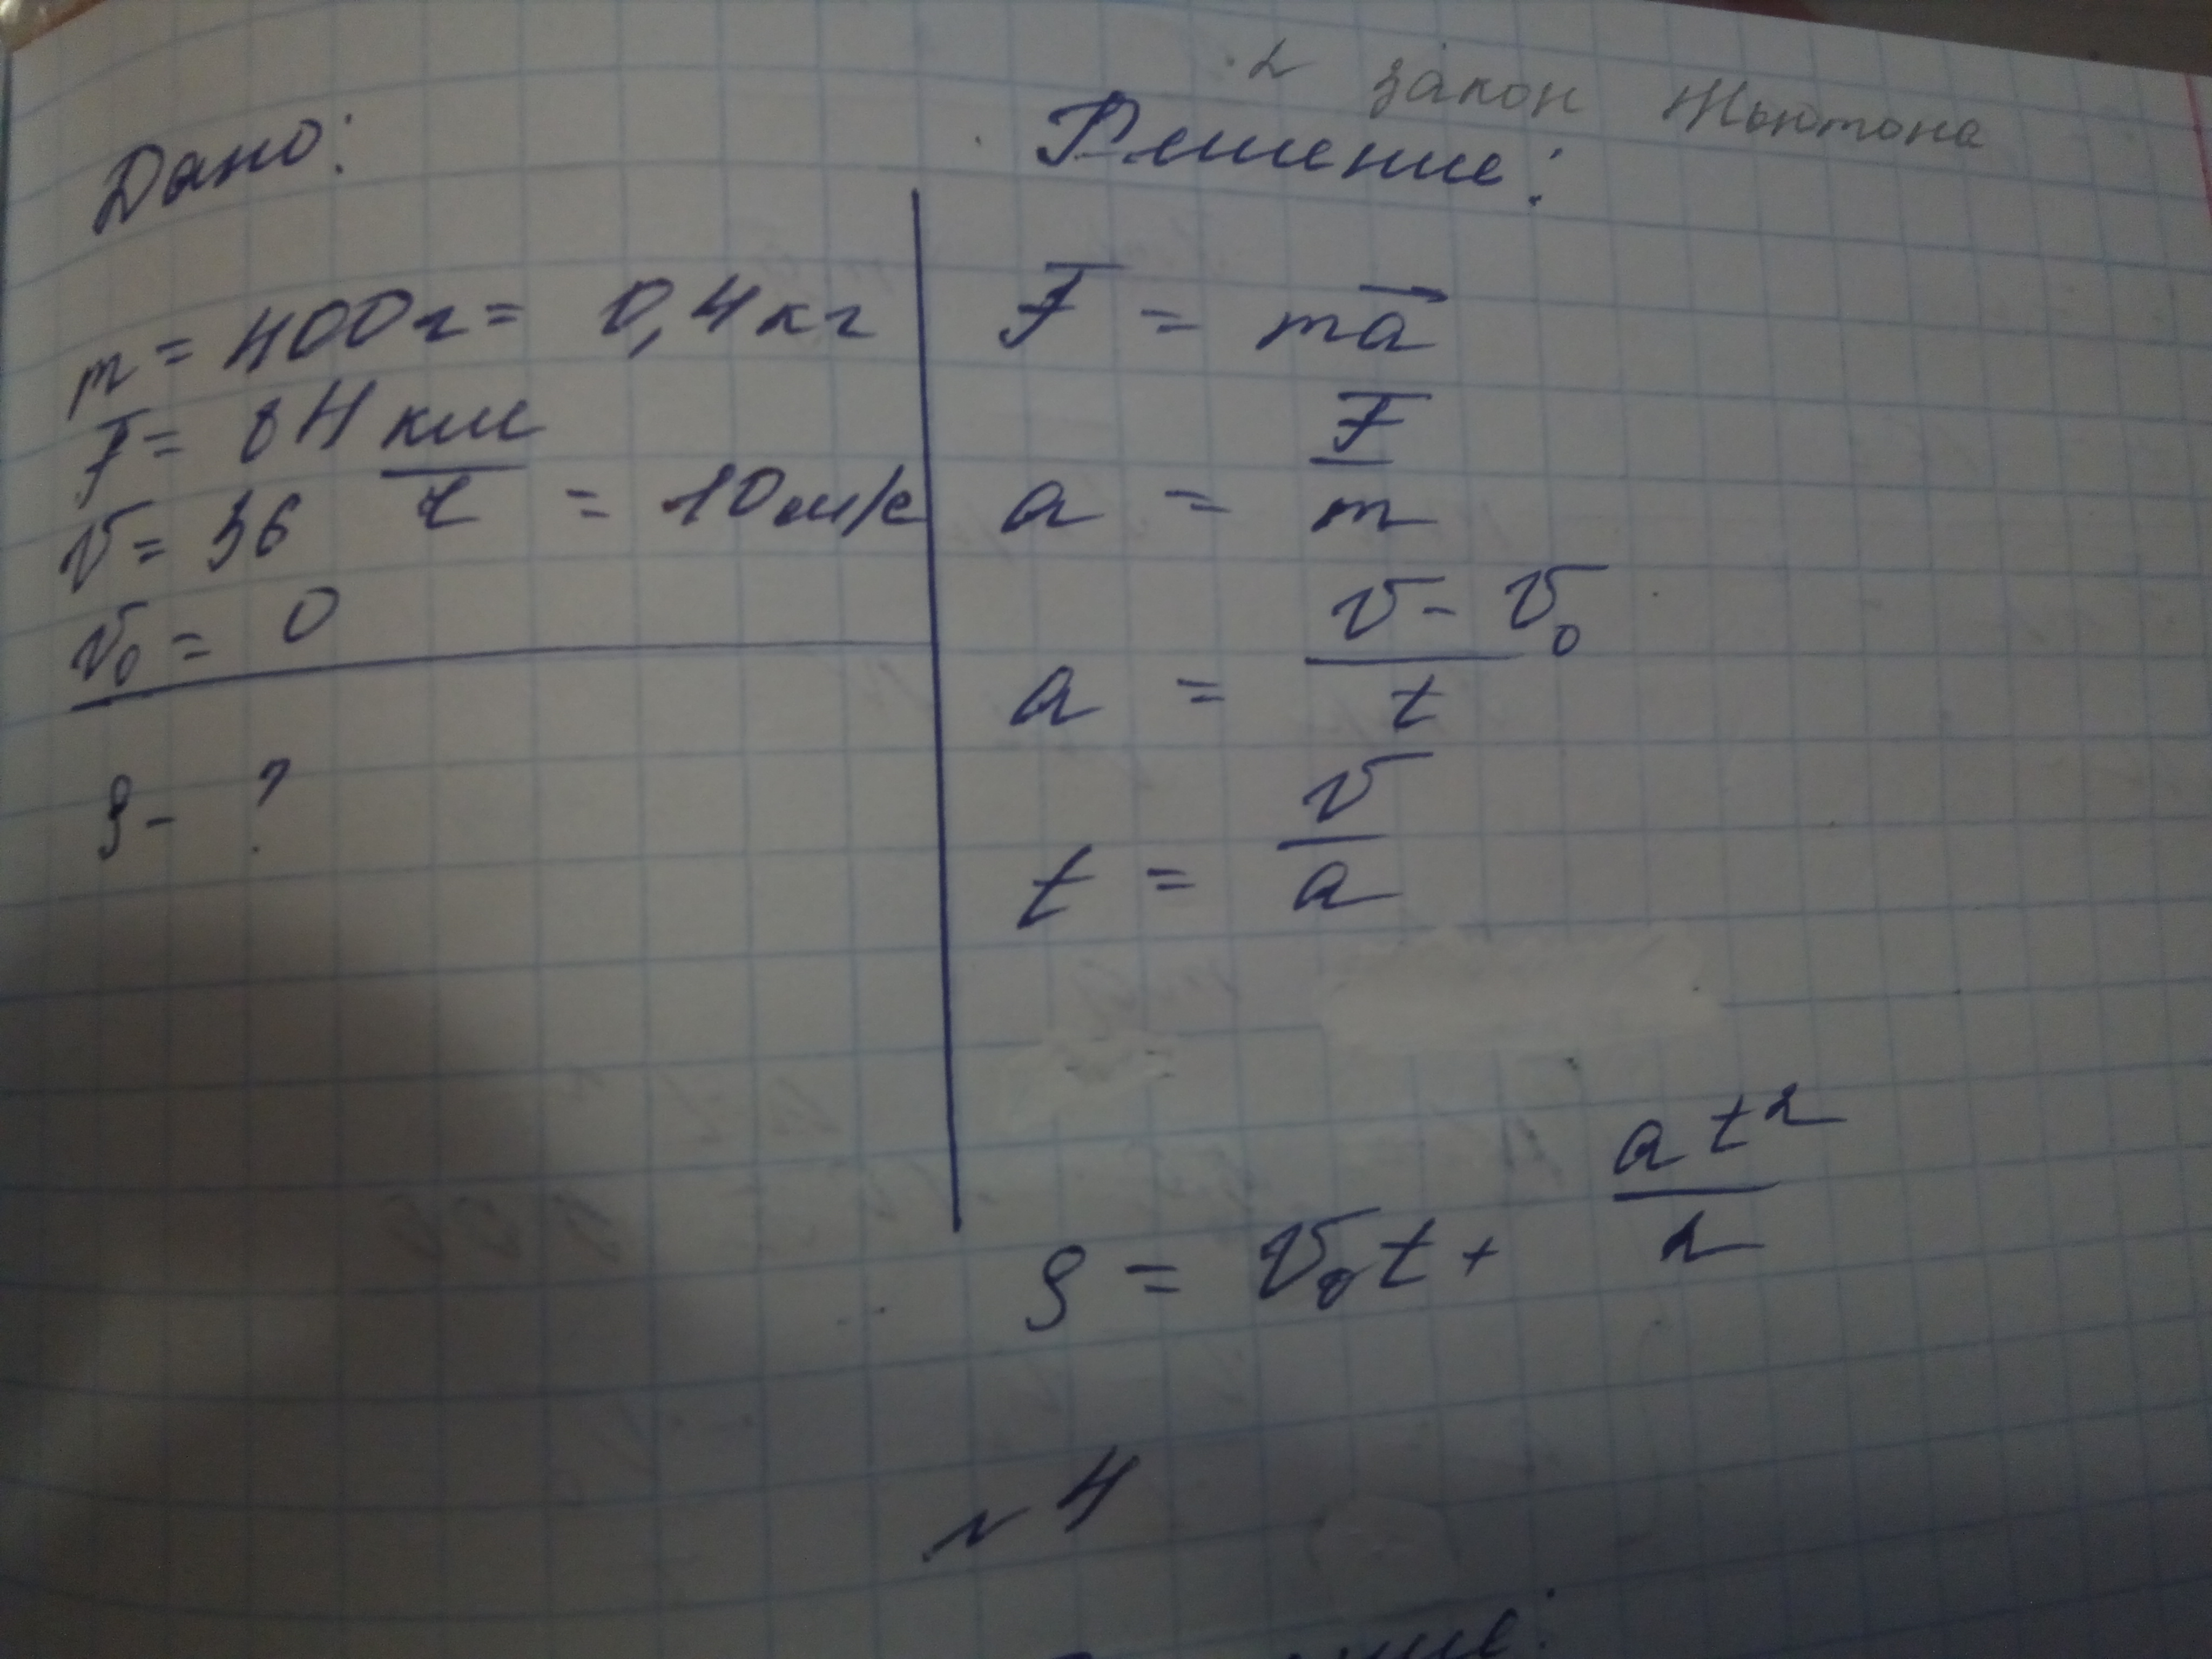 2 закон Ньютона
Дано:
m = 400г = 0,4кг
F = 8Н
v = 36 км/ч = 10м/с
v₀ = 0
S - ?
Решение:
F = ma⃗
a = F/m
a = (v - v₀)/t
t = v/a
S = v₀t + at²/2
№4